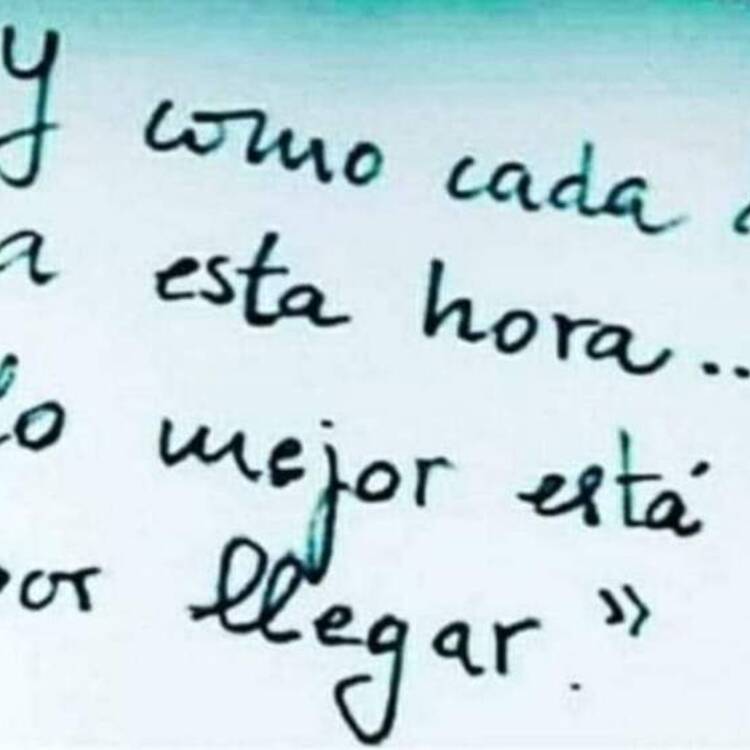 y como cada
a esta hora...
lo mejor está
por llegar."